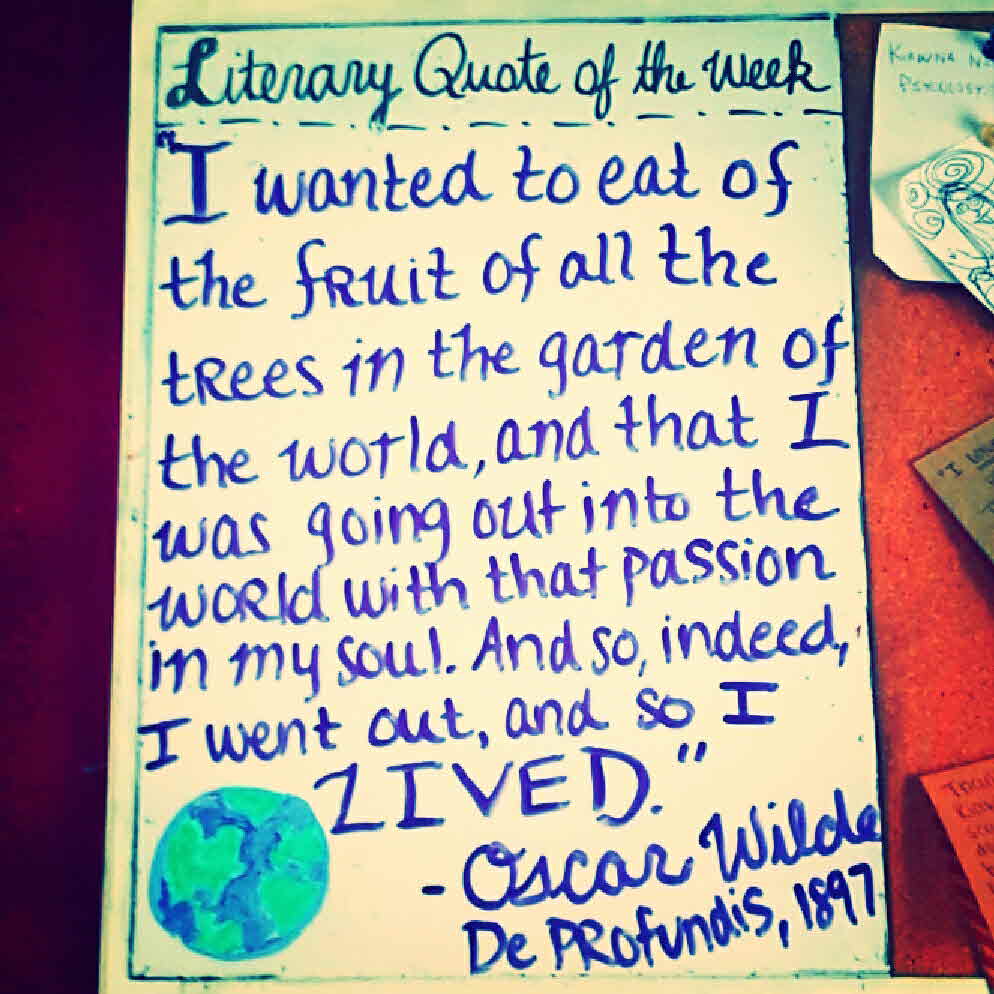 Literary Quote of the Week
"I wanted to eat of
the fruit of all the
trees in the garden of
the world, and that I
was going out into the
world with that passion
in my soul. And so, indeed,
I went out, and so I
LIVED."
- Oscar Wilde
De Profundis, 1897
"I